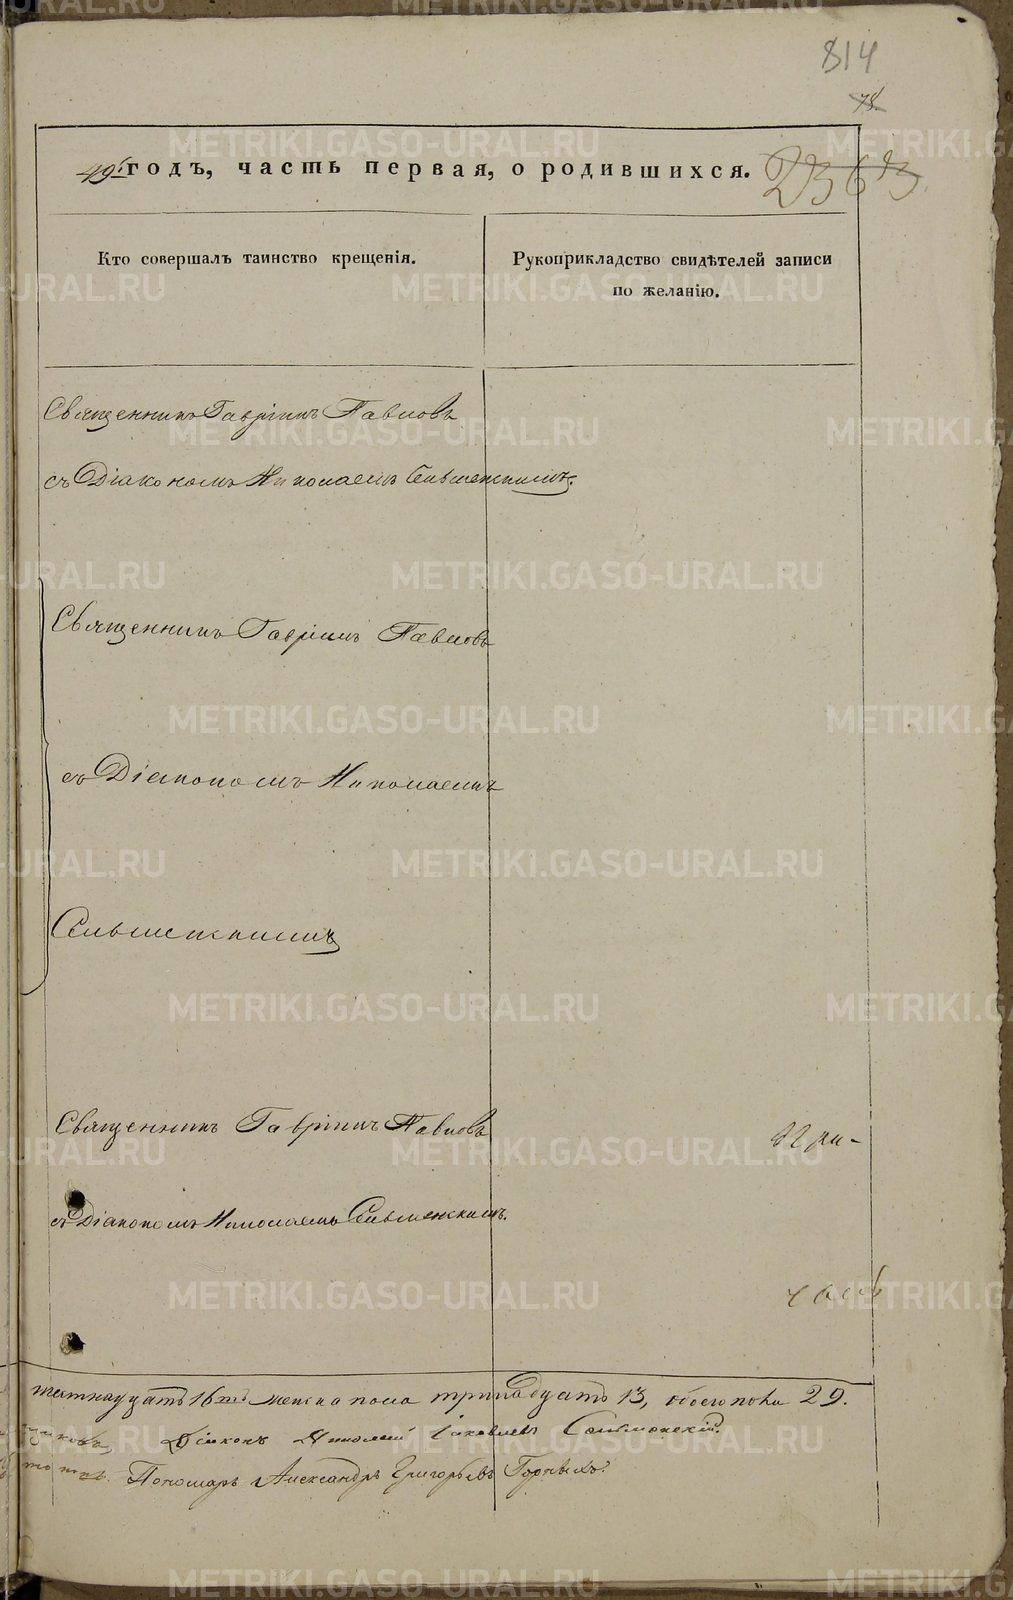 814
78
49 годъ, часть первая, о родившихся.
Кто совершалъ таинство крещенія.
Рукоприкладство свидѣтелей записи
по желанію.
Священникъ Гавріилъ Павловъ
съ Діакономъ Николаемъ Сельменскимъ.
Священникъ Гавріилъ Павловъ
съ Діакономъ Николаемъ
Сельменскимъ
Священникъ Гавріилъ Павловъ
съ Діакономъ Николаемъ Сельменскимъ.
шестнадцать 16ть женска пола тринадцать 13, обоего пола 29.
Діаконъ Николай Іаковлевъ Сельменскій
Пономарь Александръ Григорьевъ Горныхъ.
METRIKI.GASO-URAL.RU